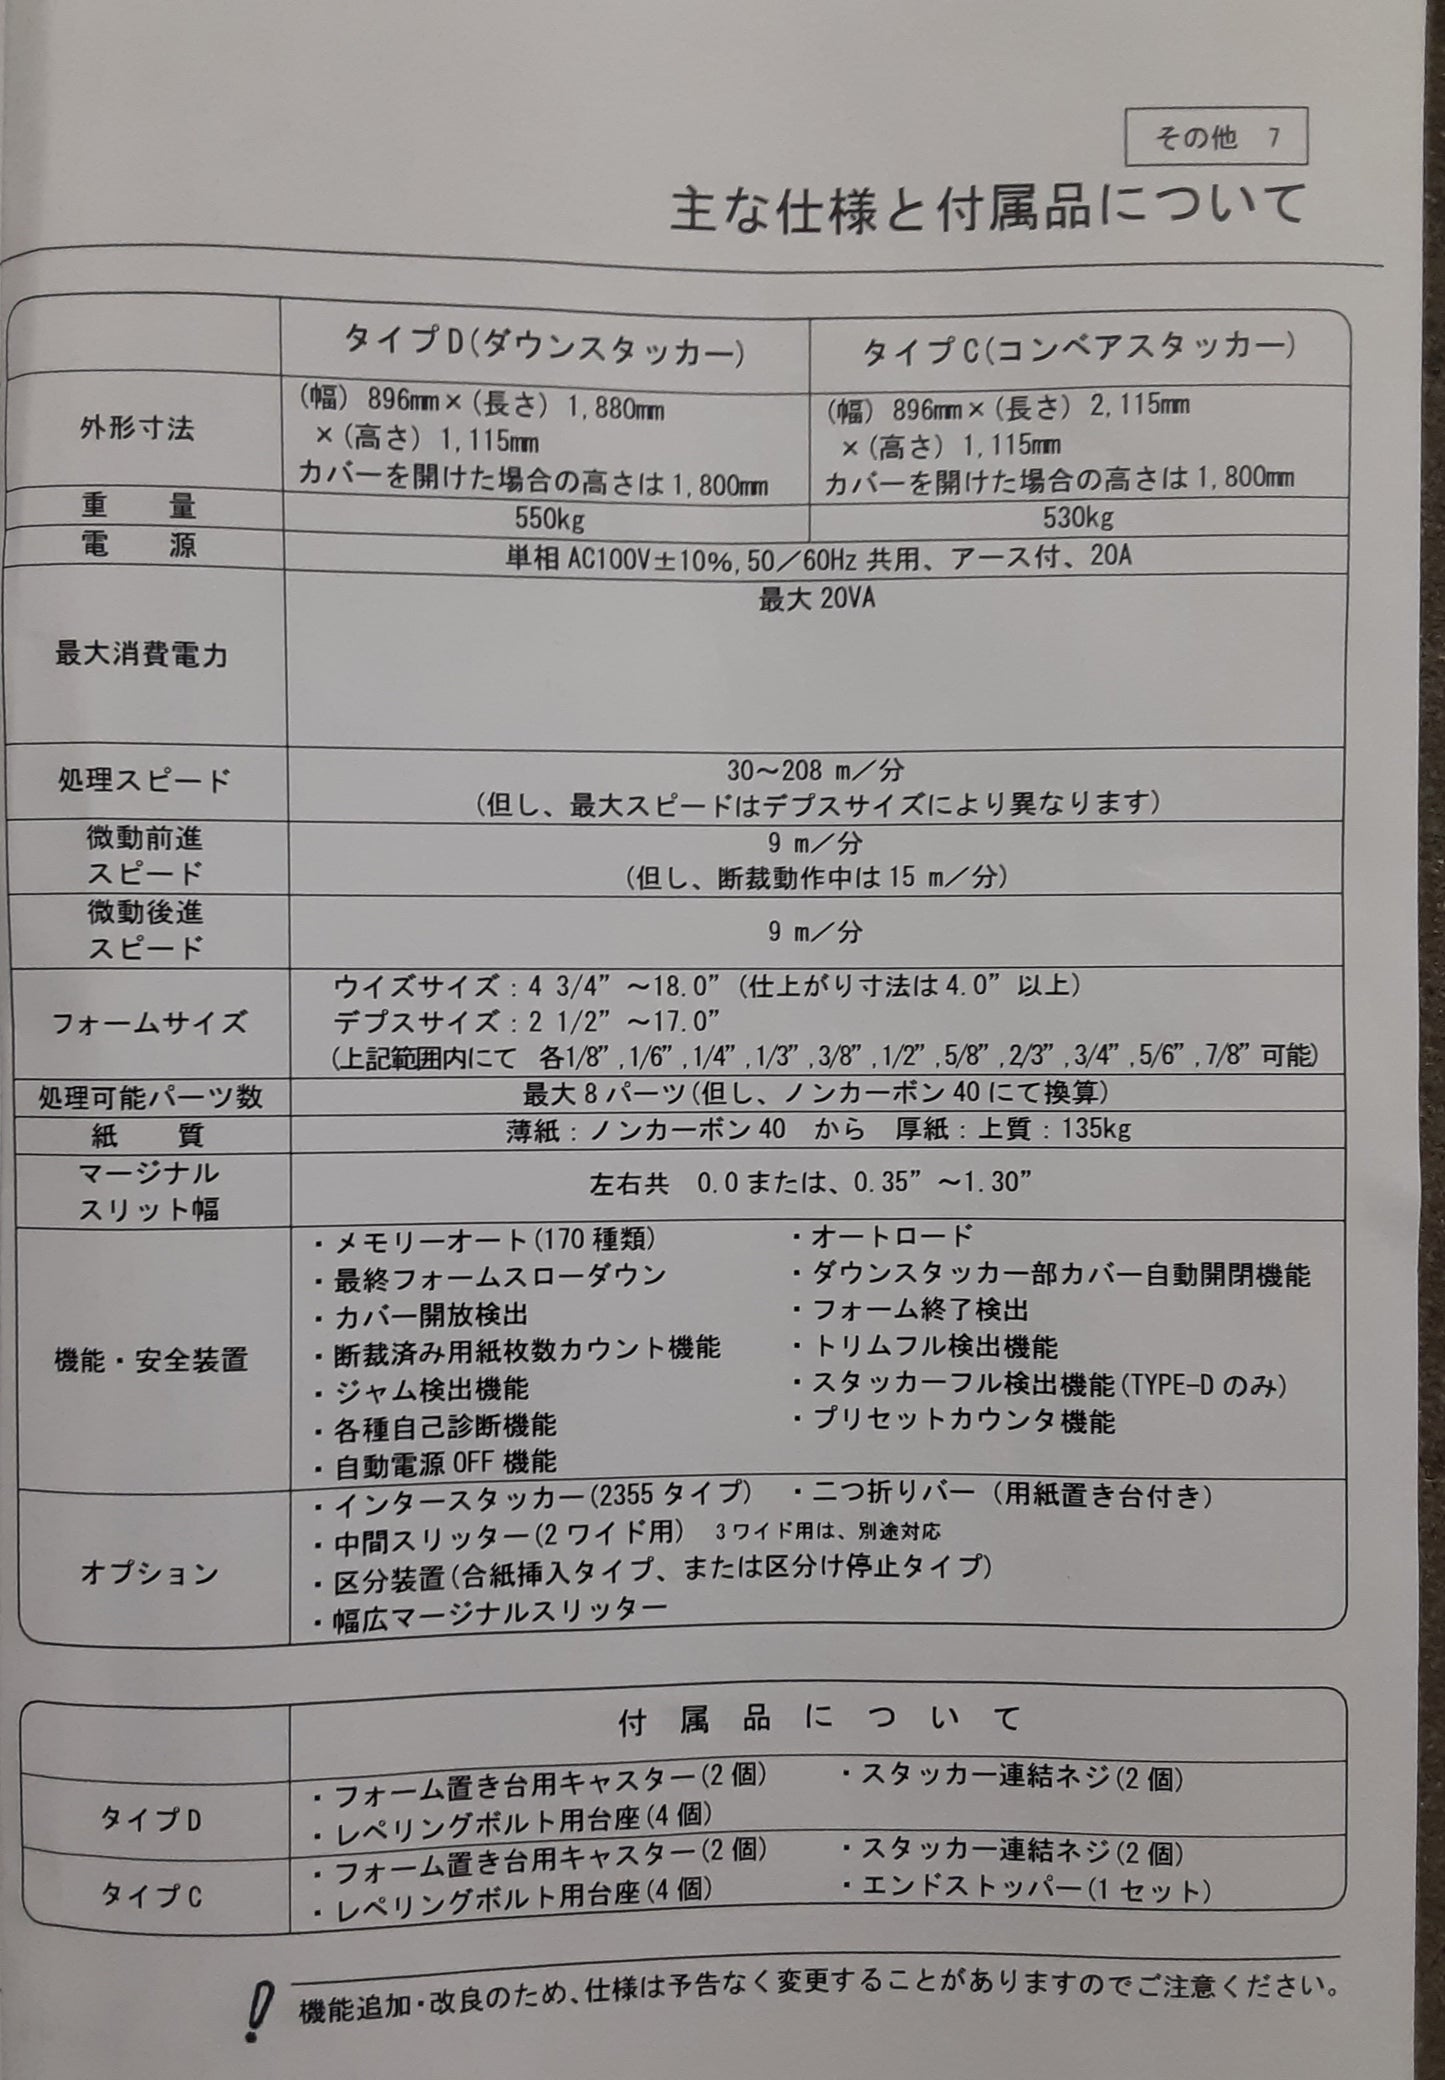 その他 7
主な仕様と付属品について
タイプD(ダウンスタッカー) タイプC(コンベアスタッカー)
外形寸法
(幅) 896mm×(長さ) 1,880mm
×(高さ) 1,115mm
カバーを開けた場合の高さは1,800mm
(幅) 896mm×(長さ) 2,115mm
×(高さ) 1,115mm
カバーを開けた場合の高さは1,800mm
重 量 550kg 530kg
電 源 単相AC100V±10%,50/60Hz共用、アース付、20A
最大消費電力 最大20VA
処理スピード
30~208 m/分
(但し、最大スピードはデプスサイズにより異なります)
微動前進
スピード
9 m/分
(但し、断裁動作中は15 m/分)
微動後進
スピード
9 m/分
フォームサイズ
ウイズサイズ:4 3/4”~18.0”(仕上がり寸法は4.0”以上)
デプスサイズ:2 1/2”~17.0”
(上記範囲内にて 各1/8”,1/6”,1/4”,1/3”,3/8”,1/2”,5/8”,2/3”,3/4”,5/6”,7/8”可能)
処理可能パーツ数 最大8パーツ(但し、ノンカーボン40にて換算)
紙 質 薄紙:ノンカーボン40 から 厚紙:上質:135kg
マージナル
スリット幅
左右共 0.0または、0.35”~1.30”
機能・安全装置
・メモリーオート(170種類) ・オートロード
・最終フォームスローダウン ・ダウンスタッカー部カバー自動開閉機能
・カバー開放検出 ・フォーム終了検出
・断裁済み用紙枚数カウント機能 ・トリムフル検出機能
・ジャム検出機能 ・スタッカーフル検出機能(TYPE-Dのみ)
・各種自己診断機能 ・プリセットカウンタ機能
・自動電源OFF機能
オプション
・インタースタッカー(2355タイプ) ・二つ折りバー(用紙置き台付き)
・中間スリッター(2ワイド用) 3ワイド用は、別途対応
・区分装置(合紙挿入タイプ、または区分け停止タイプ)
・幅広マージナルスリッター
付属品について
タイプD
・フォーム置き台用キャスター(2個) ・スタッカー連結ネジ(2個)
・レペリングボルト用台座(4個)
タイプC
・フォーム置き台用キャスター(2個) ・スタッカー連結ネジ(2個)
・レペリングボルト用台座(4個) ・エンドストッパー(1セット)
! 機能追加・改良のため、仕様は予告なく変更することがありますのでご注意ください。